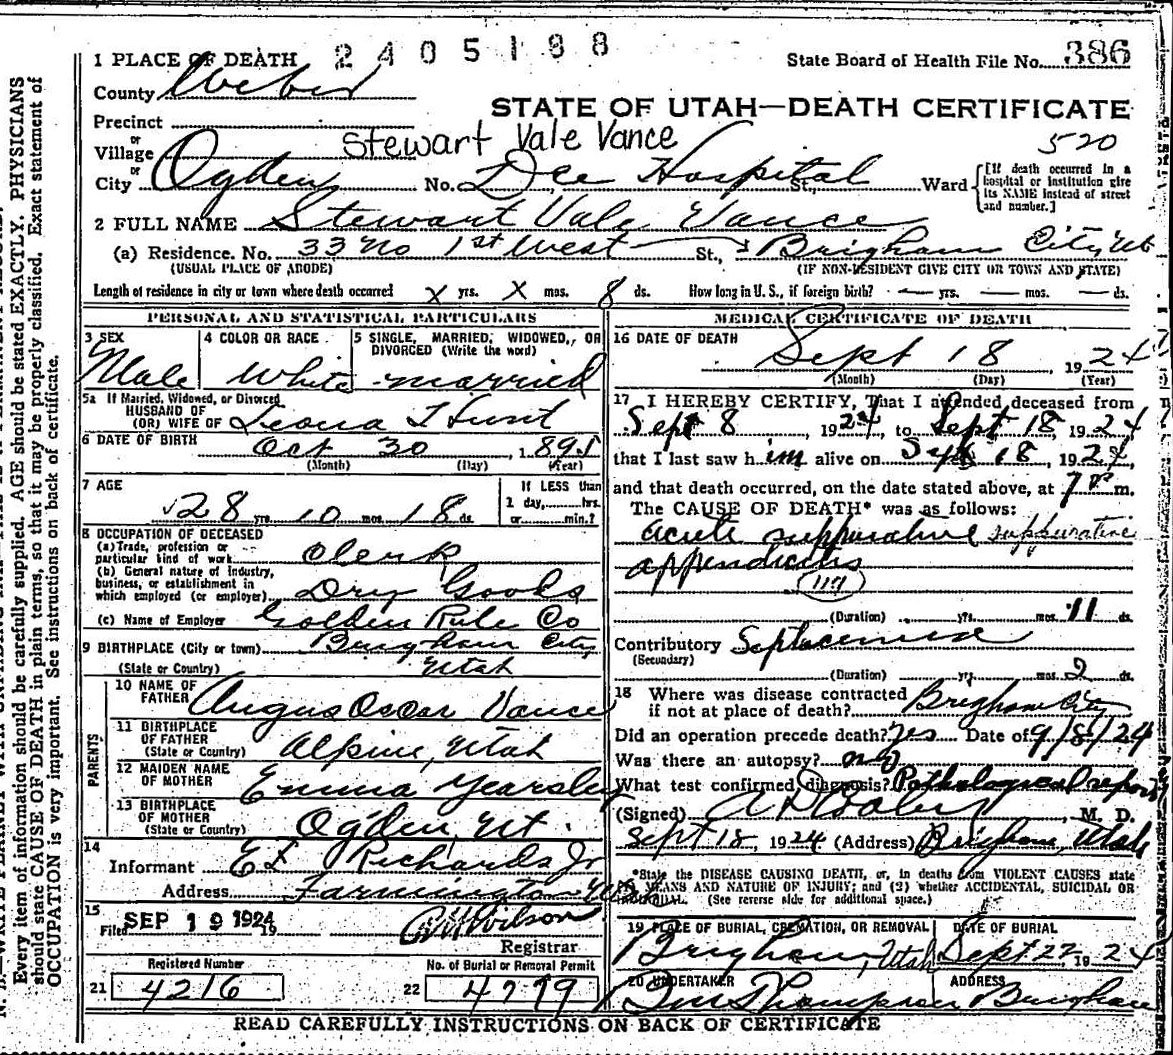 2405188
1 PLACE OF DEATH
State Board of Health File No. 386
County Weber
STATE OF UTAH—DEATH CERTIFICATE
Precinct
or
Village
Stewart Vale Vance
520
or
City Ogden No. Dee Hospital St., Ward [If death occurred in a hospital or institution give its NAME instead of street and number.]
2 FULL NAME Stewart Vale Vance
(a) Residence. No. 33 No 1st West St., Brigham City, Ut
(USUAL PLACE OF ABODE) (IF NON-RESIDENT GIVE CITY OR TOWN AND STATE)
Length of residence in city or town where death occurred X yrs. X mos. 8 ds. How long in U. S., if foreign birth? — yrs. — mos. — ds.
PERSONAL AND STATISTICAL PARTICULARS
3 SEX
Male
4 COLOR OR RACE
White
5 SINGLE, MARRIED, WIDOWED, OR
DIVORCED (Write the word)
married
5a If Married, Widowed, or Divorced
HUSBAND OF
(OR) WIFE OF Leona T Hunt
6 DATE OF BIRTH Oct 30, 1895
(Month) (Day) (Year)
7 AGE
28 yrs. 10 mos. 18 ds.
If LESS than
1 day, hrs.
or min.?
8 OCCUPATION OF DECEASED
(a) Trade, profession or
particular kind of work Clerk
(b) General nature of industry,
business, or establishment in
which employed (or employer) Dry Goods
(c) Name of Employer Golden Rule Co
9 BIRTHPLACE (City or town) Brigham City
(State or Country) Utah
PARENTS
10 NAME OF
FATHER Angus Oscar Vance
11 BIRTHPLACE
OF FATHER
(State or Country) Alpine, Utah
12 MAIDEN NAME
OF MOTHER Emma Yearsley
13 BIRTHPLACE
OF MOTHER
(State or Country) Ogden, Ut.
14
Informant Richards Jr
Address Farmington
15
Filed SEP 19 1924 Wilson
Registrar
Registered Number
21 4216
No. of Burial or Removal Permit
22 4779
MEDICAL CERTIFICATE OF DEATH
16 DATE OF DEATH
Sept 18, 1924
(Month) (Day) (Year)
17 I HEREBY CERTIFY, That I attended deceased from
Sept 8, 1924, to Sept 18, 1924
that I last saw him alive on Sept 18, 1924
and that death occurred, on the date stated above, at 7 m.
The CAUSE OF DEATH* was as follows:
acute suppurative suppurative
appendicitis
(Duration) yrs. mos. 11 ds.
Contributory
(Secondary)
(Duration) yrs. mos. 2 ds.
18 Where was disease contracted
if not at place of death? Brigham City
Did an operation precede death? yes Date of 9/8/24
Was there an autopsy? no
What test confirmed diagnosis? Pathological report
(Signed) , M. D.
Sept 18, 1924 (Address) Brigham, Utah
*State the DISEASE CAUSING DEATH, or, in deaths from VIOLENT CAUSES state
MEANS AND NATURE OF INJURY; and (2) whether ACCIDENTAL, SUICIDAL OR
(See reverse side for additional space.)
19 PLACE OF BURIAL, CREMATION, OR REMOVAL
Brigham, Utah
DATE OF BURIAL
Sept 22, 1924
20 UNDERTAKER
Thompson
ADDRESS
Brigham
READ CAREFULLY INSTRUCTIONS ON BACK OF CERTIFICATE
Every item of information should be carefully supplied. AGE should be stated EXACTLY. PHYSICIANS
should state CAUSE OF DEATH in plain terms, so that it may be properly classified. Exact statement of
OCCUPATION is very important. See instructions on back of certificate.